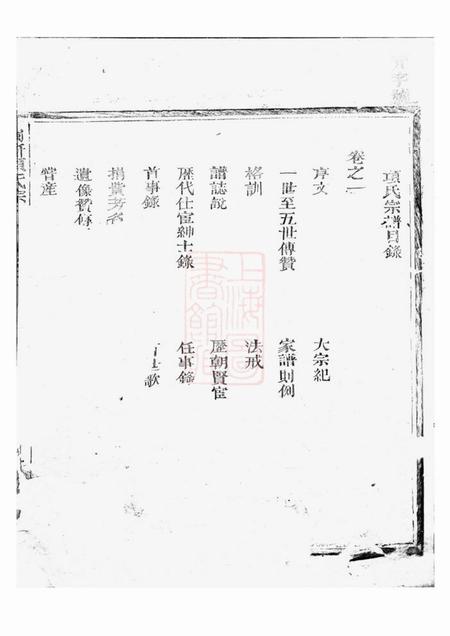 項氏宗譜目錄
卷之一
序文
大宗紀
一世至五世傳贊
家譜則例
格訓
法戒
譜誌說
歷朝賢宦
歷代仕宦紳士錄
任事錄
首事錄
歌
捐貲芳名
遺像贊
嘗產
項氏宗
上海圖書館藏